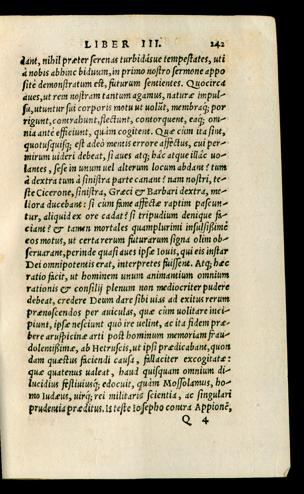 LIBER III. 242
dant, nihil præter serenas turbidásue tempestates, uti
à nobis abhinc biduum, in primo nostro sermone appo
sitè demonstratum est, futurum sentientes. Quocirca
aues, ut rem nostram tantum agamus, naturæ impul-
su, utuntur sui corporis motu ut uolūt, membraq́; por
rigunt, contrahunt, flectunt, contorquent, eaq́; om-
nia antè efficiunt, quàm cogitent. Quæ cùm ita sint,
quotusquisq́; est adeò mentis errore affectus, cui per-
mirum uideri debeat, si aues atq́; hàc atque illàc uo-
lantes, sese in unum uel alterum locum abdant? tum
à dextra tum à sinistra parte canant? nam nostri, te-
ste Cicerone, sinistra, Græci & Barbari dextra, me-
liora ducebant: si cùm fame affectæ raptim pascun-
tur, aliquid ex ore cadat? si tripudium denique fa-
ciant? & tamen mortales quamplurimi insulsissimè
eos motus, ut certarerum futurarum signa olim ob-
seruarant, perinde quasi aues ipsæ Iouis, qui eis instar
Dei omnipotentis erat, interpretes fuissent. Atq́; hæc
ratio facit, ut hominem unum animantium omnium
rationis & consilij plenum non mediocriter pudere
debeat, credere Deum dare sibi uias ad exitus rerum
prænoscendos per auiculas, quæ cùm uolitare inci-
piunt, ipsæ nesciunt quò ire uelint, ac ita fidem præ-
bere aruspicinæ arti post hominum memoriam frau
dolentissimæ, ab Hetruscis, ut ipsi prædicabant, quon
dam quæstus faciendi causa, fallaciter excogitatæ:
quæ quatenus ualeat, haud quisquam omnium di-
lucidius festiuiusq́; edocuit, quàm Mossolamus, ho-
mo Iudæus, uirq́; rei militaris scientia, ac singulari
prudentia præditus. Is teste Iosepho contra Appionē,
Q 4